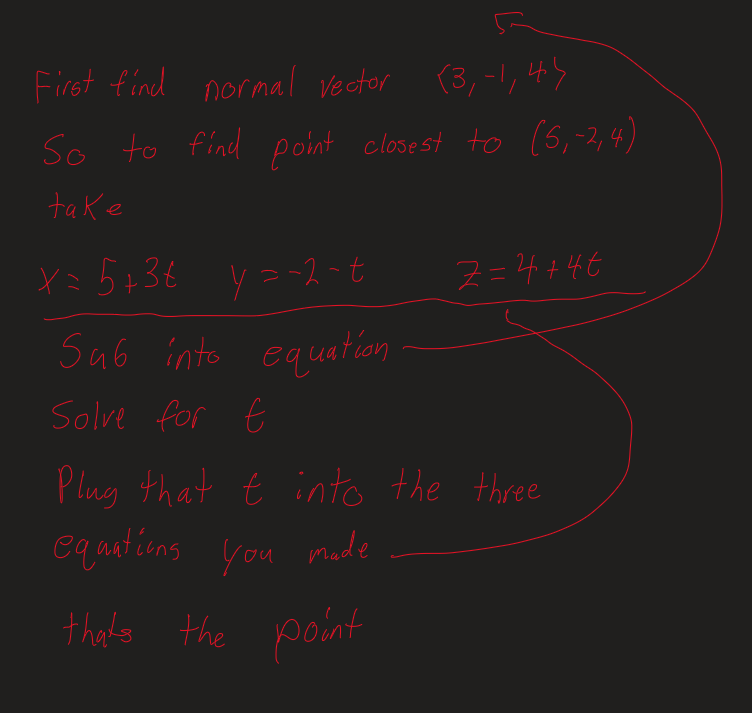 First find normal vector ⟨3, -1, 4⟩
So to find point closest to (5, -2, 4)
take
x = 5 + 3t y = -2 - t z = 4 + 4t
Sub into equation
Solve for t
Plug that t into the three
equations you made
thats the point